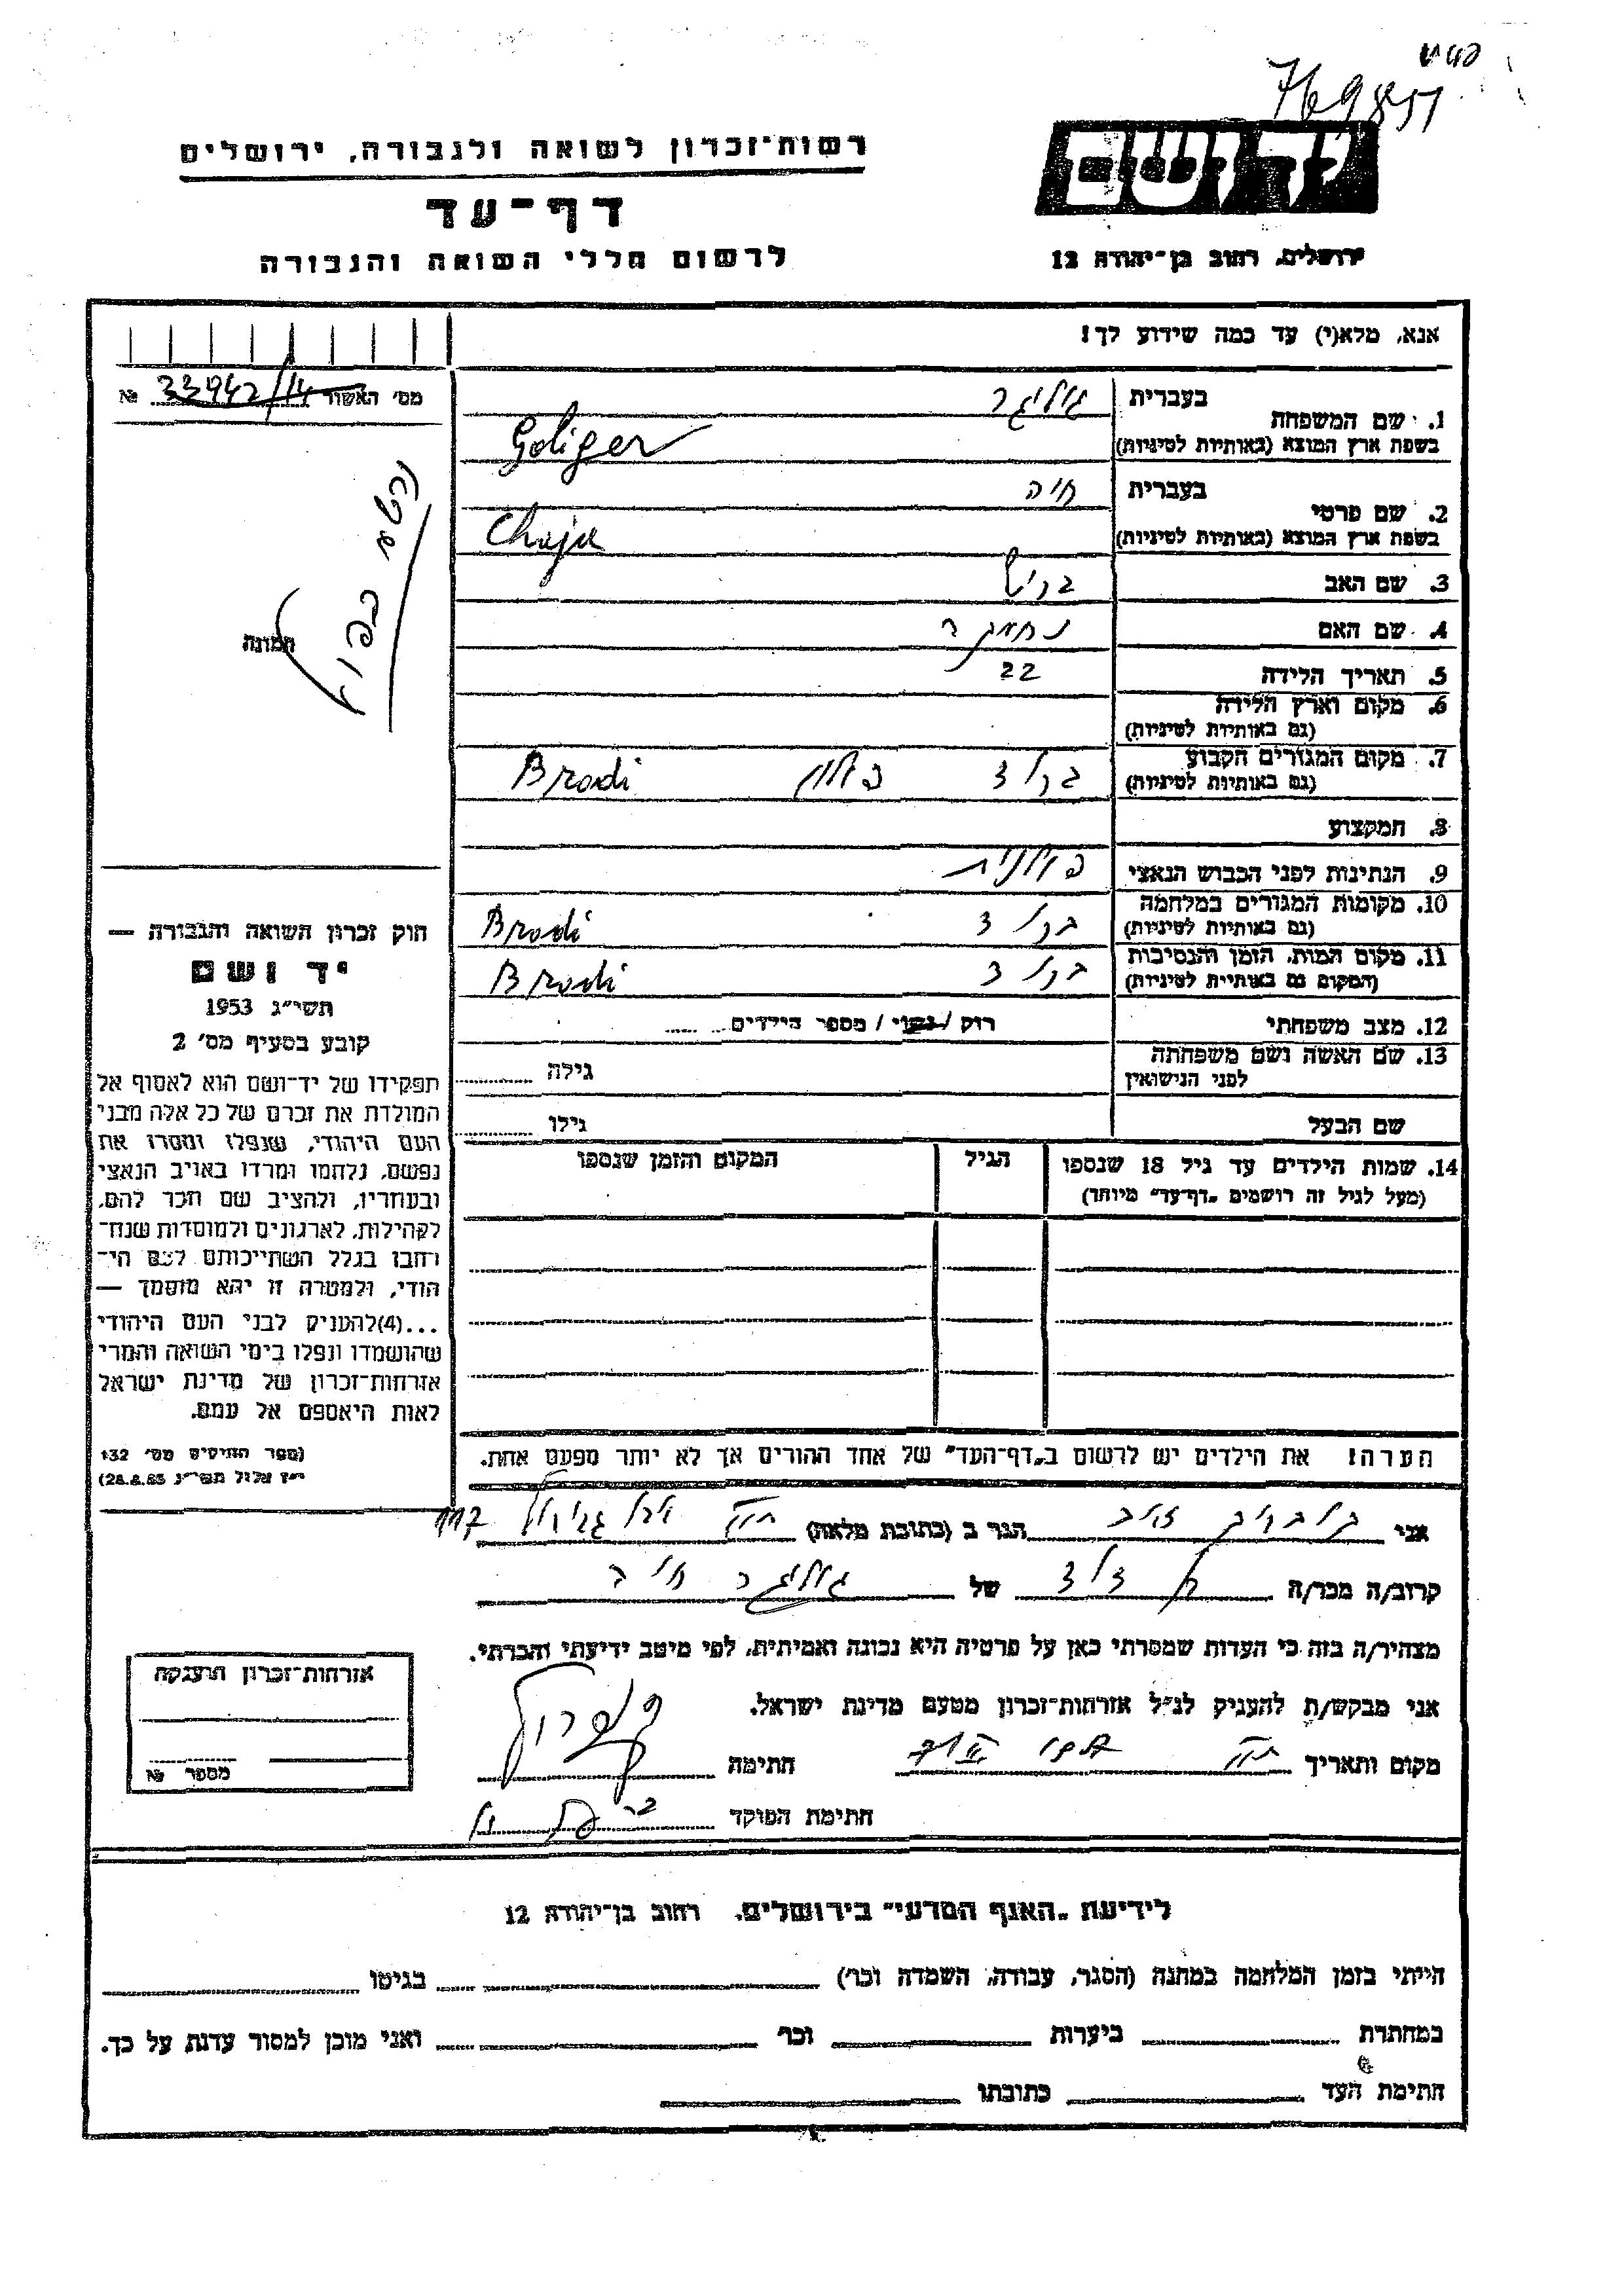 769857
יד ושם
רשות־זכרון לשואה ולגבורה, ירושלים
דף־עד
לרשום חללי השואה והגבורה
ירושלים, רחוב בן־יהודה 12
אנא, מלא(י) עד כמה שידוע לך!
מס' האשור 33942/14 №
1. שם המשפחה
בעברית גוליגר
בשפת ארץ המוצא (באותיות לטיניות) Goliger
2. שם פרטי
בעברית חיה
בשפת ארץ המוצא (באותיות לטיניות) Chaja
3. שם האב
4. שם האם
5. תאריך הלידה 22
6. מקום וארץ הלידה
(גם באותיות לטיניות)
7. מקום המגורים הקבוע
(גם באותיות לטיניות) ברודי פולין Brodi
8. המקצוע
9. הנתינות לפני הכבוש הנאצי פולנית
10. מקומות המגורים במלחמה
(גם באותיות לטיניות) ברודי Brodi
11. מקום המות, הזמן והנסיבות
(המקום גם באותיות לטיניות) ברודי Brodi
12. מצב משפחתי רוק / נשוי / מספר הילדים
13. שם האשה ושם משפחתה
לפני הנישואין גילה
שם הבעל גילו
14. שמות הילדים עד גיל 18 שנספו
(מעל לגיל זה רושמים "דף־עד" מיוחד)
הגיל
המקום והזמן שנספו
הערה! את הילדים יש לרשום ב"דף־העד" של אחד ההורים אך לא יותר מפעם אחת.
תמונה
חוק זכרון השואה והגבורה —
יד ושם
תשי"ג 1953
קובע בסעיף מס' 2
תפקידו של יד־ושם הוא לאסוף אל
המולדת את זכרם של כל אלה מבני
העם היהודי, שנפלו ומסרו את
נפשם, נלחמו ומרדו באויב הנאצי
ובעוזריו, ולהציב שם וזכר להם,
לקהילות, לארגונים ולמוסדות שנח־
רבו בגלל השתייכותם לעם הי־
הודי, ולמטרה זו יהא מוסמך —
...(4)להעניק לבני העם היהודי
שהושמדו ונפלו בימי השואה והמרי
אזרחות־זכרון של מדינת ישראל
לאות היאספם אל עמם.
(ספר החוקים מס' 132
י"ז אלול תשי"ג 28.8.53)
אני הגר ב (כתובת מלאה) 117
קרוב/ה מכר/ה של גוליגר
מצהיר/ה בזה כי העדות שמסרתי כאן על פרטיה היא נכונה ואמיתית, לפי מיטב ידיעתי והכרתי.
אני מבקש/ת להעניק לנ"ל אזרחות־זכרון מטעם מדינת ישראל.
מקום ותאריך חתימה
חתימת הפוקד
אזרחות־זכרון הוענקה
מספר №
לידיעת "האגף המדעי" בירושלים, רחוב בן־יהודה 12
הייתי בזמן המלחמה במחנה (הסגר, עבודה, השמדה וכו') בגיטו
במחתרת ביערות וכו' ואני מוכן למסור עדות על כך.
חתימת העד כתובתו